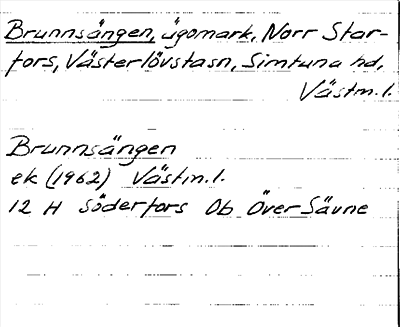 Brunnsängen, ägomark, Norr Star-
fors, Västerlövstasn, Simtuna hd,
Västm.l.
Brunnsängen
ek (1962) Västm.l.
12 H Söderfors Ob Över Sävne